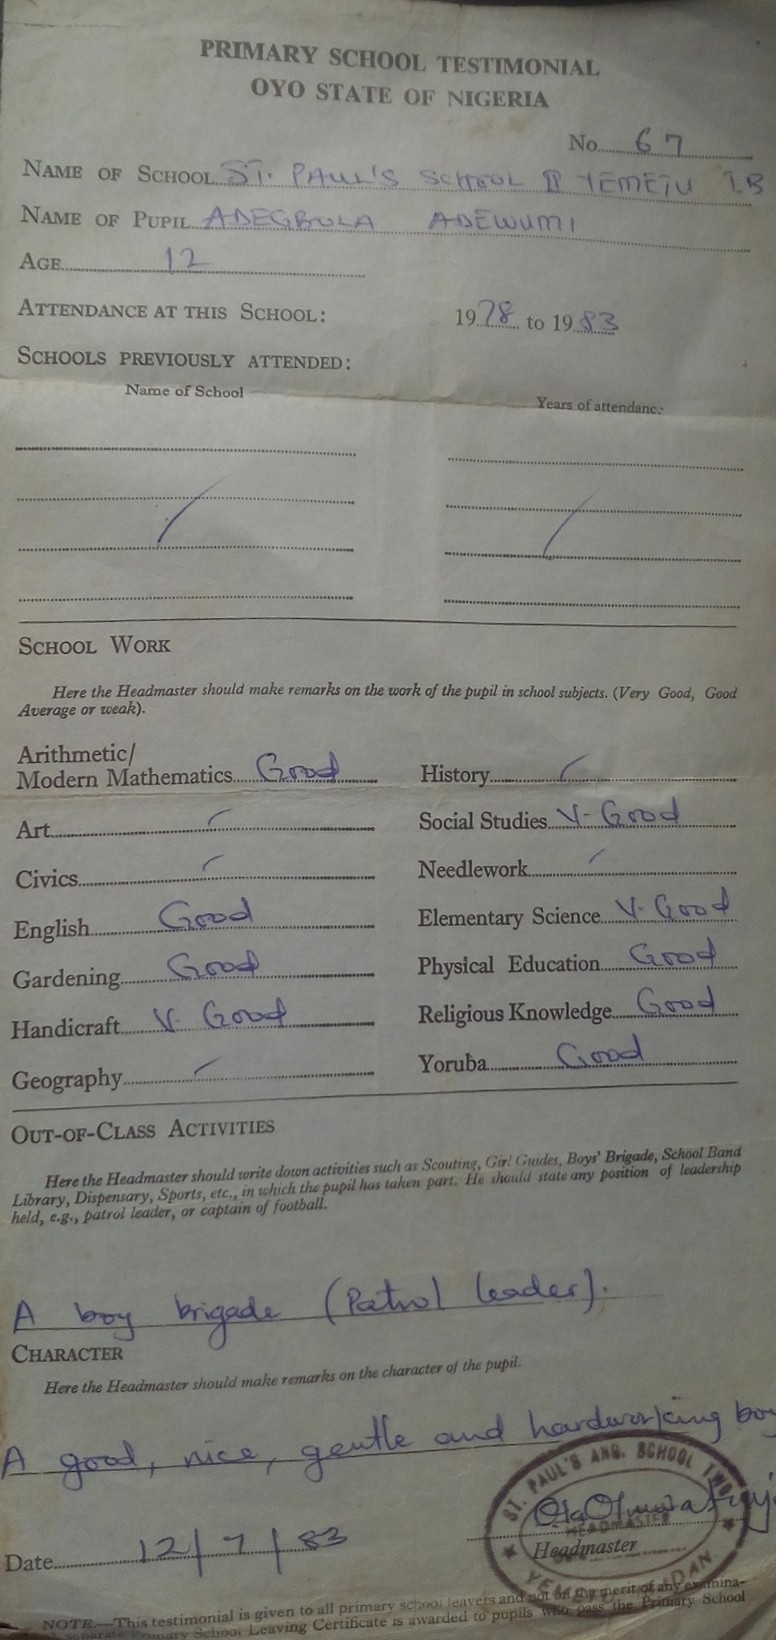 PRIMARY SCHOOL TESTIMONIAL
OYO STATE OF NIGERIA
No. 67
NAME OF SCHOOL ST. PAUL'S SCHOOL II YEMETU I.B
NAME OF PUPIL ADEGBOLA ADEWUMI
AGE 12
ATTENDANCE AT THIS SCHOOL: 1978 to 1983
SCHOOLS PREVIOUSLY ATTENDED:
Name of School Years of attendance:
SCHOOL WORK
Here the Headmaster should make remarks on the work of the pupil in school subjects. (Very Good, Good
Average or weak).
Arithmetic/
Modern Mathematics Good History
Art Social Studies V. Good
Civics Needlework
English Good Elementary Science V. Good
Gardening Good Physical Education Good
Handicraft V. Good Religious Knowledge Good
Geography Yoruba Good
OUT-OF-CLASS ACTIVITIES
Here the Headmaster should write down activities such as Scouting, Girl Guides, Boys' Brigade, School Band
Library, Dispensary, Sports, etc., in which the pupil has taken part. He should state any position of leadership
held, e.g., patrol leader, or captain of football.
A boy brigade (Patrol leader).
CHARACTER
Here the Headmaster should make remarks on the character of the pupil.
A good, nice, gentle and hardworking boy
ST. PAUL'S ANG. SCHOOL TWO
HEADMASTER
Date 12/7/83 Headmaster
NOTE.—This testimonial is given to all primary school leavers and not on the merit of any examina-
separate Primary School Leaving Certificate is awarded to pupils who pass the Primary School